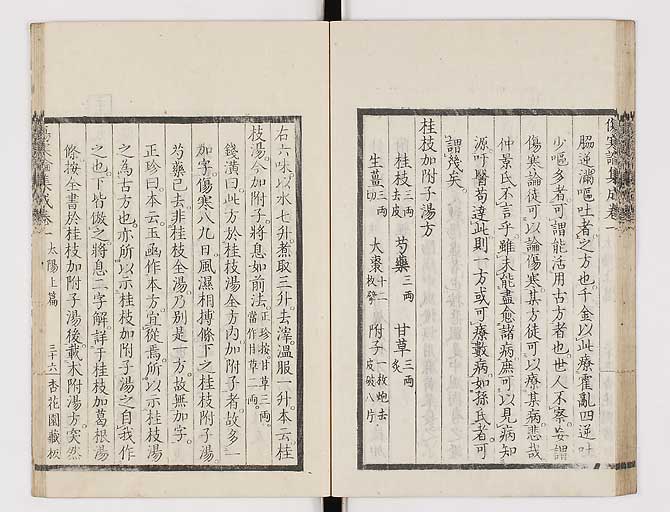 傷寒論集成卷一
腦逆溺嘔吐者之方也千金以此療霍亂四逆吐
少嘔多者可謂能活用古方者也世人不察妄謂
傷寒論徒可以論傷寒某方徒可以療某病悲哉
仲景氏不言乎雖未能盡愈諸病庶可以見病知
源吁醫苟達此則一方或可療數病如孫氏者可
謂幾矣
桂枝加附子湯方
桂枝三兩去皮 芍藥三兩 甘草三兩炙
生薑三兩切 大棗十二枚擘 附子一枚炮去皮破八片
右六味以水七升煮取三升去滓溫服一升本云桂
枝湯今加附子將息如前法正珍按甘草三兩當作甘草二兩
錢潢曰此方於桂枝湯全方內加附子者故多一
加字傷寒八九日風濕相搏條下之桂枝附子湯
芍藥已去非桂枝全湯乃別是一方故無加字
正珍曰本云玉函作本方宜從焉所以示桂枝湯
之為古方也亦所以示桂枝加附子湯之自我作
之也下皆倣之將息二字解詳于桂枝加葛根湯
條按全書於桂枝加附子湯後載朮附湯方突然
傷寒論集成卷一 太陽上篇 三十六 杏花園藏板